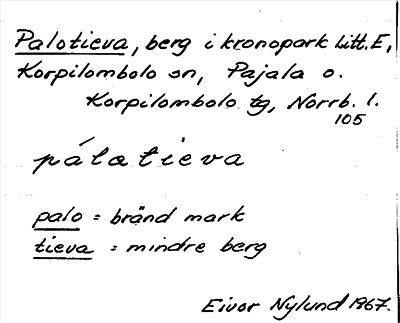 Palotieva, berg i kronopark Litt. E,
Korpilombolo sn, Pajala o.
Korpilombolo tg, Norrb. l.
105
pálatieva
palo = bränd mark
tieva = mindre berg
Eivor Nylund 1967.